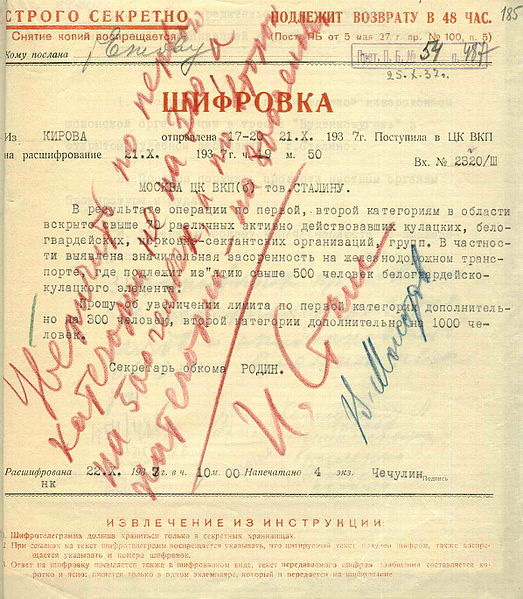 СТРОГО СЕКРЕТНО
Снятие копий воспрещается
ПОДЛЕЖИТ ВОЗВРАТУ В 48 ЧАС.
185
(Пост. ПБ от 5 мая 27 г. пр. № 100, п. 5)
Кому послана
Ежову
Прот. П. Б. № 54 п. 487
25.X.37г.
ШИФРОВКА
Из КИРОВА отправлена 17-20 21.X. 1937г. Поступила в ЦК ВКП
на расшифрование 21.X. 1937г. ч 19 м. 50
Вх. № 2320/Ш
МОСКВА ЦК ВКП(б) тов. СТАЛИНУ.
В результате операции по первой, второй категориям в области
вскрыто свыше различных активно действовавших кулацких, бело-
гвардейских, церковно-сектантских организаций, групп. В частнос-
ти выявлена значительная засоренность на железнодорожном транс-
порте, где подлежит из"ятию свыше 500 человек белогвардейско-
кулацкого элемента.
Прошу об увеличении лимита по первой категории дополнитель-
но на 300 человек, второй категории дополнительно на 1000 че-
ловек.
Секретарь обкома РОДИН.
Увеличить по первой
категории не на 300, а
на 500 человек, а по второй
категории – на 800 человек
И. Сталин
В. Молотов
Расшифрована 22.X. 1937 г. в ч. 10 м. 00 Напечатано 4 экз. Чечулин
Подпись
НК
ИЗВЛЕЧЕНИЕ ИЗ ИНСТРУКЦИИ:
1. Шифротелеграмма должна храниться только в секретных хранилищах.
2. При ссылках на текст шифротелеграмм воспрещается указывать, что цитируемый текст получен шифром, также воспре-
щается указывать и номера шифровок.
3. Ответ на шифровку посылается также в шифрованном виде, текст передаваемого шифром сообщения составляется ко-
ротко и ясно; пишется только в одном экземпляре, который и передается на шифрование.